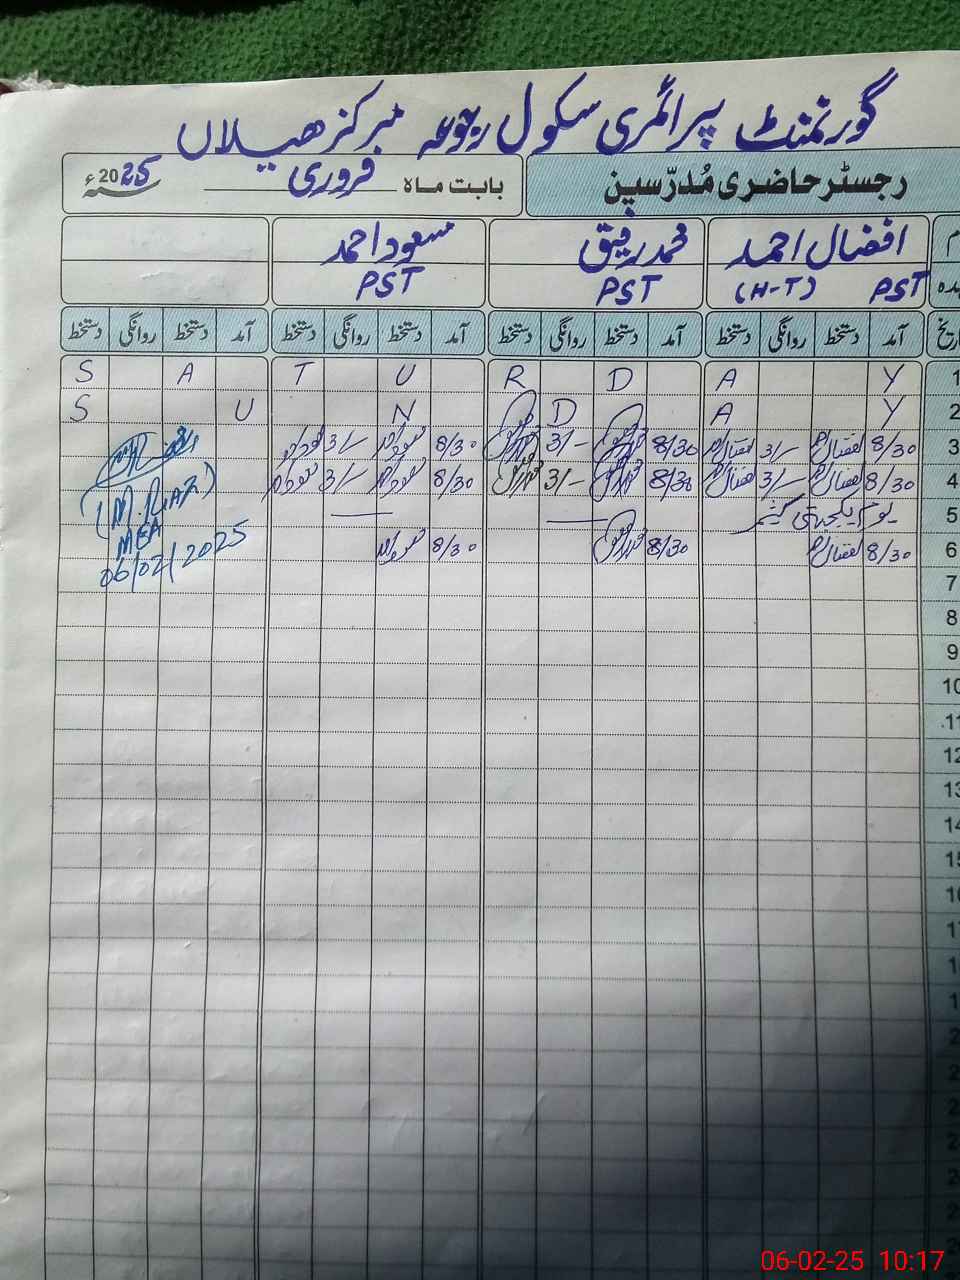 گورنمنٹ پرائمری سکول ربوعہ مرکز ھیلاں
رجسٹر حاضری مُدرّسین بابت ماہ فروری 2025ء
افضال احمد محمد رفیق مسعود احمد
PST (H-T) PST PST
آمد دستخط روانگی دستخط آمد دستخط روانگی دستخط آمد دستخط روانگی دستخط آمد دستخط روانگی دستخط
1 S A T U R D A Y
2 S U N D A Y
3 8/30 افضال 3/- افضال 8/30 3/- 8/30 3/-
4 8/30 افضال 3/- افضال 8/30 3/- 8/30 3/-
5 یوم یکجہتی کشمیر — —
6 8/30 افضال 8/30 8/30
(M. RIAZ)
MEA
06/02/2025
7
8
9
10
11
12
13
14
15
06-02-25 10:17